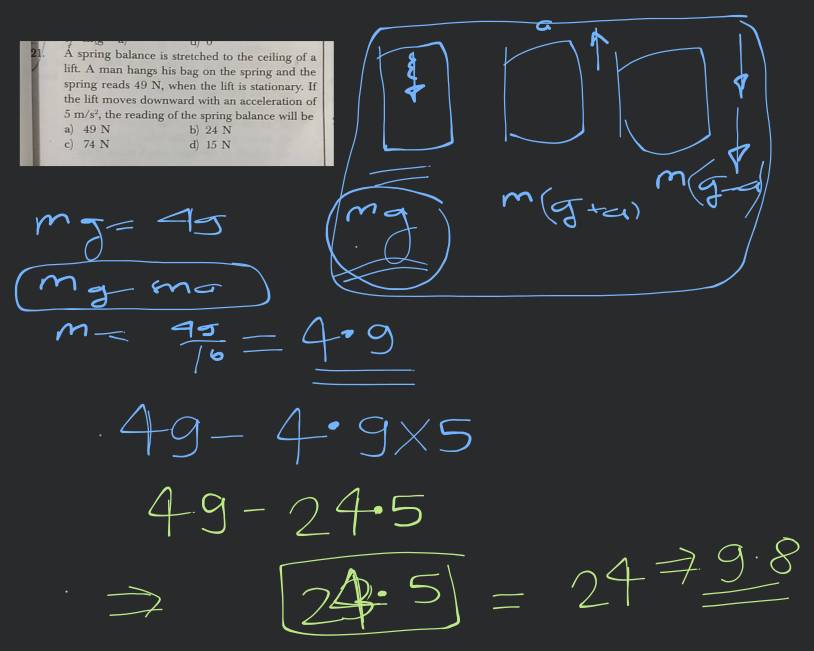 21. A spring balance is stretched to the ceiling of a
lift. A man hangs his bag on the spring and the
spring reads 49 N, when the lift is stationary. If
the lift moves downward with an acceleration of
5 m/s², the reading of the spring balance will be
a) 49 N b) 24 N
c) 74 N d) 15 N
a
mg
m(g+a)
m(g-a)
mg = 49
mg - ma
m = 49/10 = 4.9
49 - 4.9×5
49 - 24.5
⇒ 24.5 = 24 → 9.8